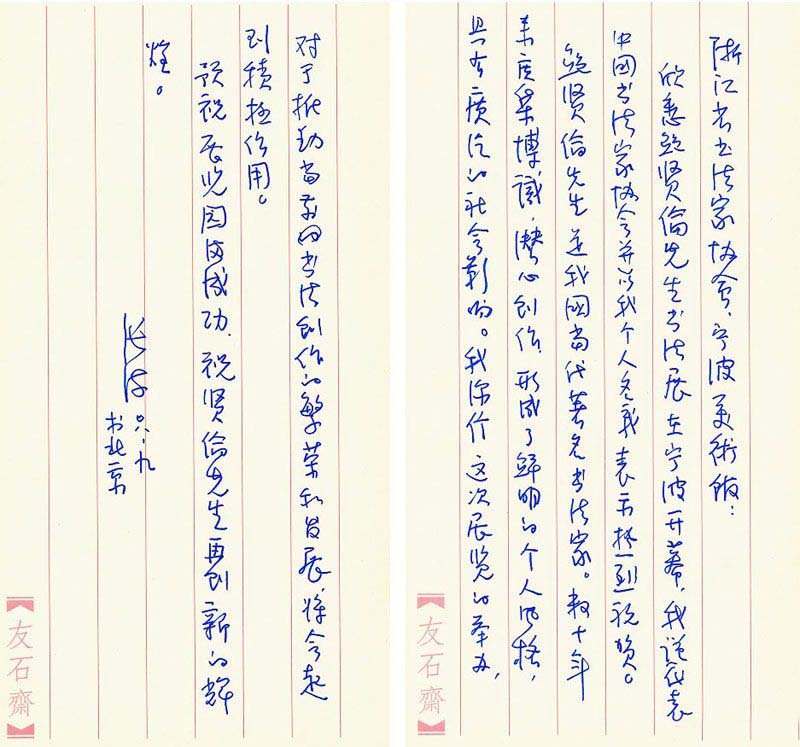 浙江省书法家协会、宁波美術館：
欣悉鲍贤倫先生书法展在宁波开幕，我谨代表
中國书法家协会并以我个人名義表示热烈祝贺。
鲍贤倫先生是我國当代著名书法家。数十年
来广采博識，潜心创作，形成了鲜明的个人风格，
具有广泛的社会影响。我深信这次展览的举办，
友石齋
对于推动当前的书法创作的繁荣和发展，将会起
到積极作用。
预祝展览园满成功，祝贤倫先生再创新的辉
煌。
〇六·九
于北京
友石齋